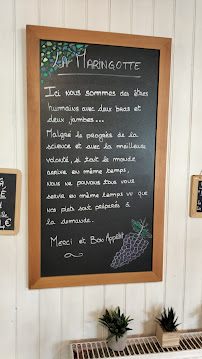 La Maringotte
Ici nous sommes des êtres
humains avec deux bras et
deux jambes...
Malgré le progrès de la
science et avec la meilleure
volonté, si tout le monde
arrive en même temps,
nous ne pouvons tous vous
servir en même temps car
nos plats sont préparés à
la demande.
Merci et Bon Appétit